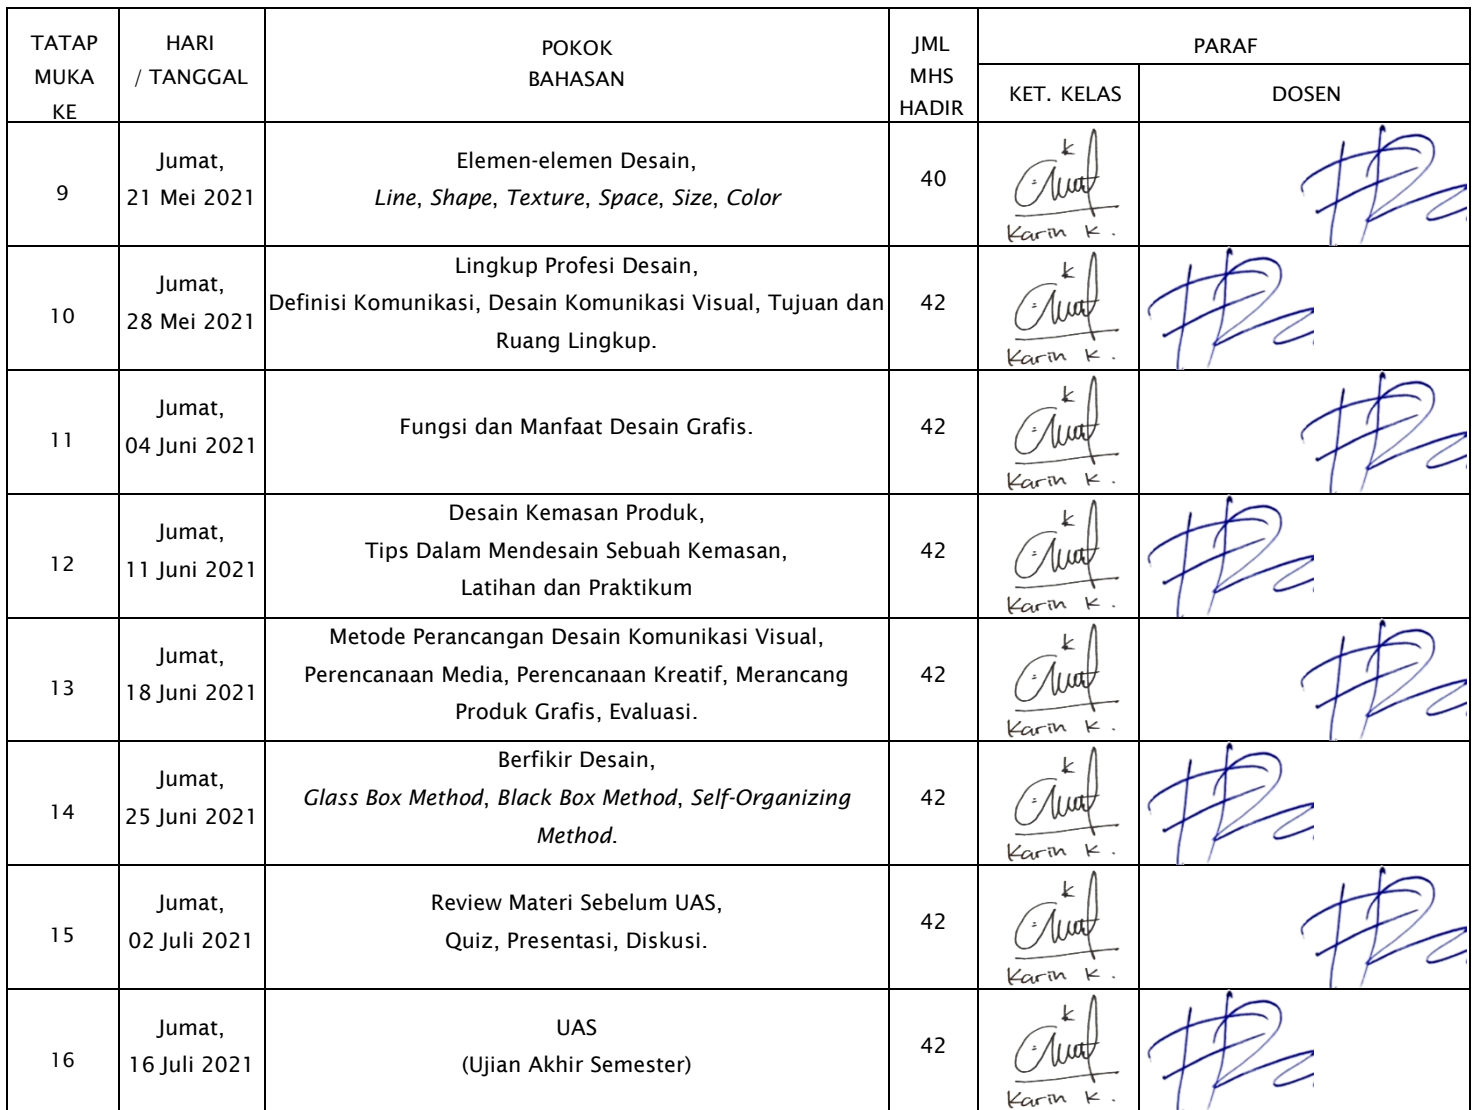 TATAP
MUKA
KE
HARI
/ TANGGAL
POKOK
BAHASAN
JML
MHS
HADIR
PARAF
KET. KELAS
DOSEN
9
Jumat,
21 Mei 2021
Elemen-elemen Desain,
Line, Shape, Texture, Space, Size, Color
40
Karin K.
10
Jumat,
28 Mei 2021
Lingkup Profesi Desain,
Definisi Komunikasi, Desain Komunikasi Visual, Tujuan dan
Ruang Lingkup.
42
Karin K.
11
Jumat,
04 Juni 2021
Fungsi dan Manfaat Desain Grafis.
42
Karin K.
12
Jumat,
11 Juni 2021
Desain Kemasan Produk,
Tips Dalam Mendesain Sebuah Kemasan,
Latihan dan Praktikum
42
Karin K.
13
Jumat,
18 Juni 2021
Metode Perancangan Desain Komunikasi Visual,
Perencanaan Media, Perencanaan Kreatif, Merancang
Produk Grafis, Evaluasi.
42
Karin K.
14
Jumat,
25 Juni 2021
Berfikir Desain,
Glass Box Method, Black Box Method, Self-Organizing
Method.
42
Karin K.
15
Jumat,
02 Juli 2021
Review Materi Sebelum UAS,
Quiz, Presentasi, Diskusi.
42
Karin K.
16
Jumat,
16 Juli 2021
UAS
(Ujian Akhir Semester)
42
Karin K.